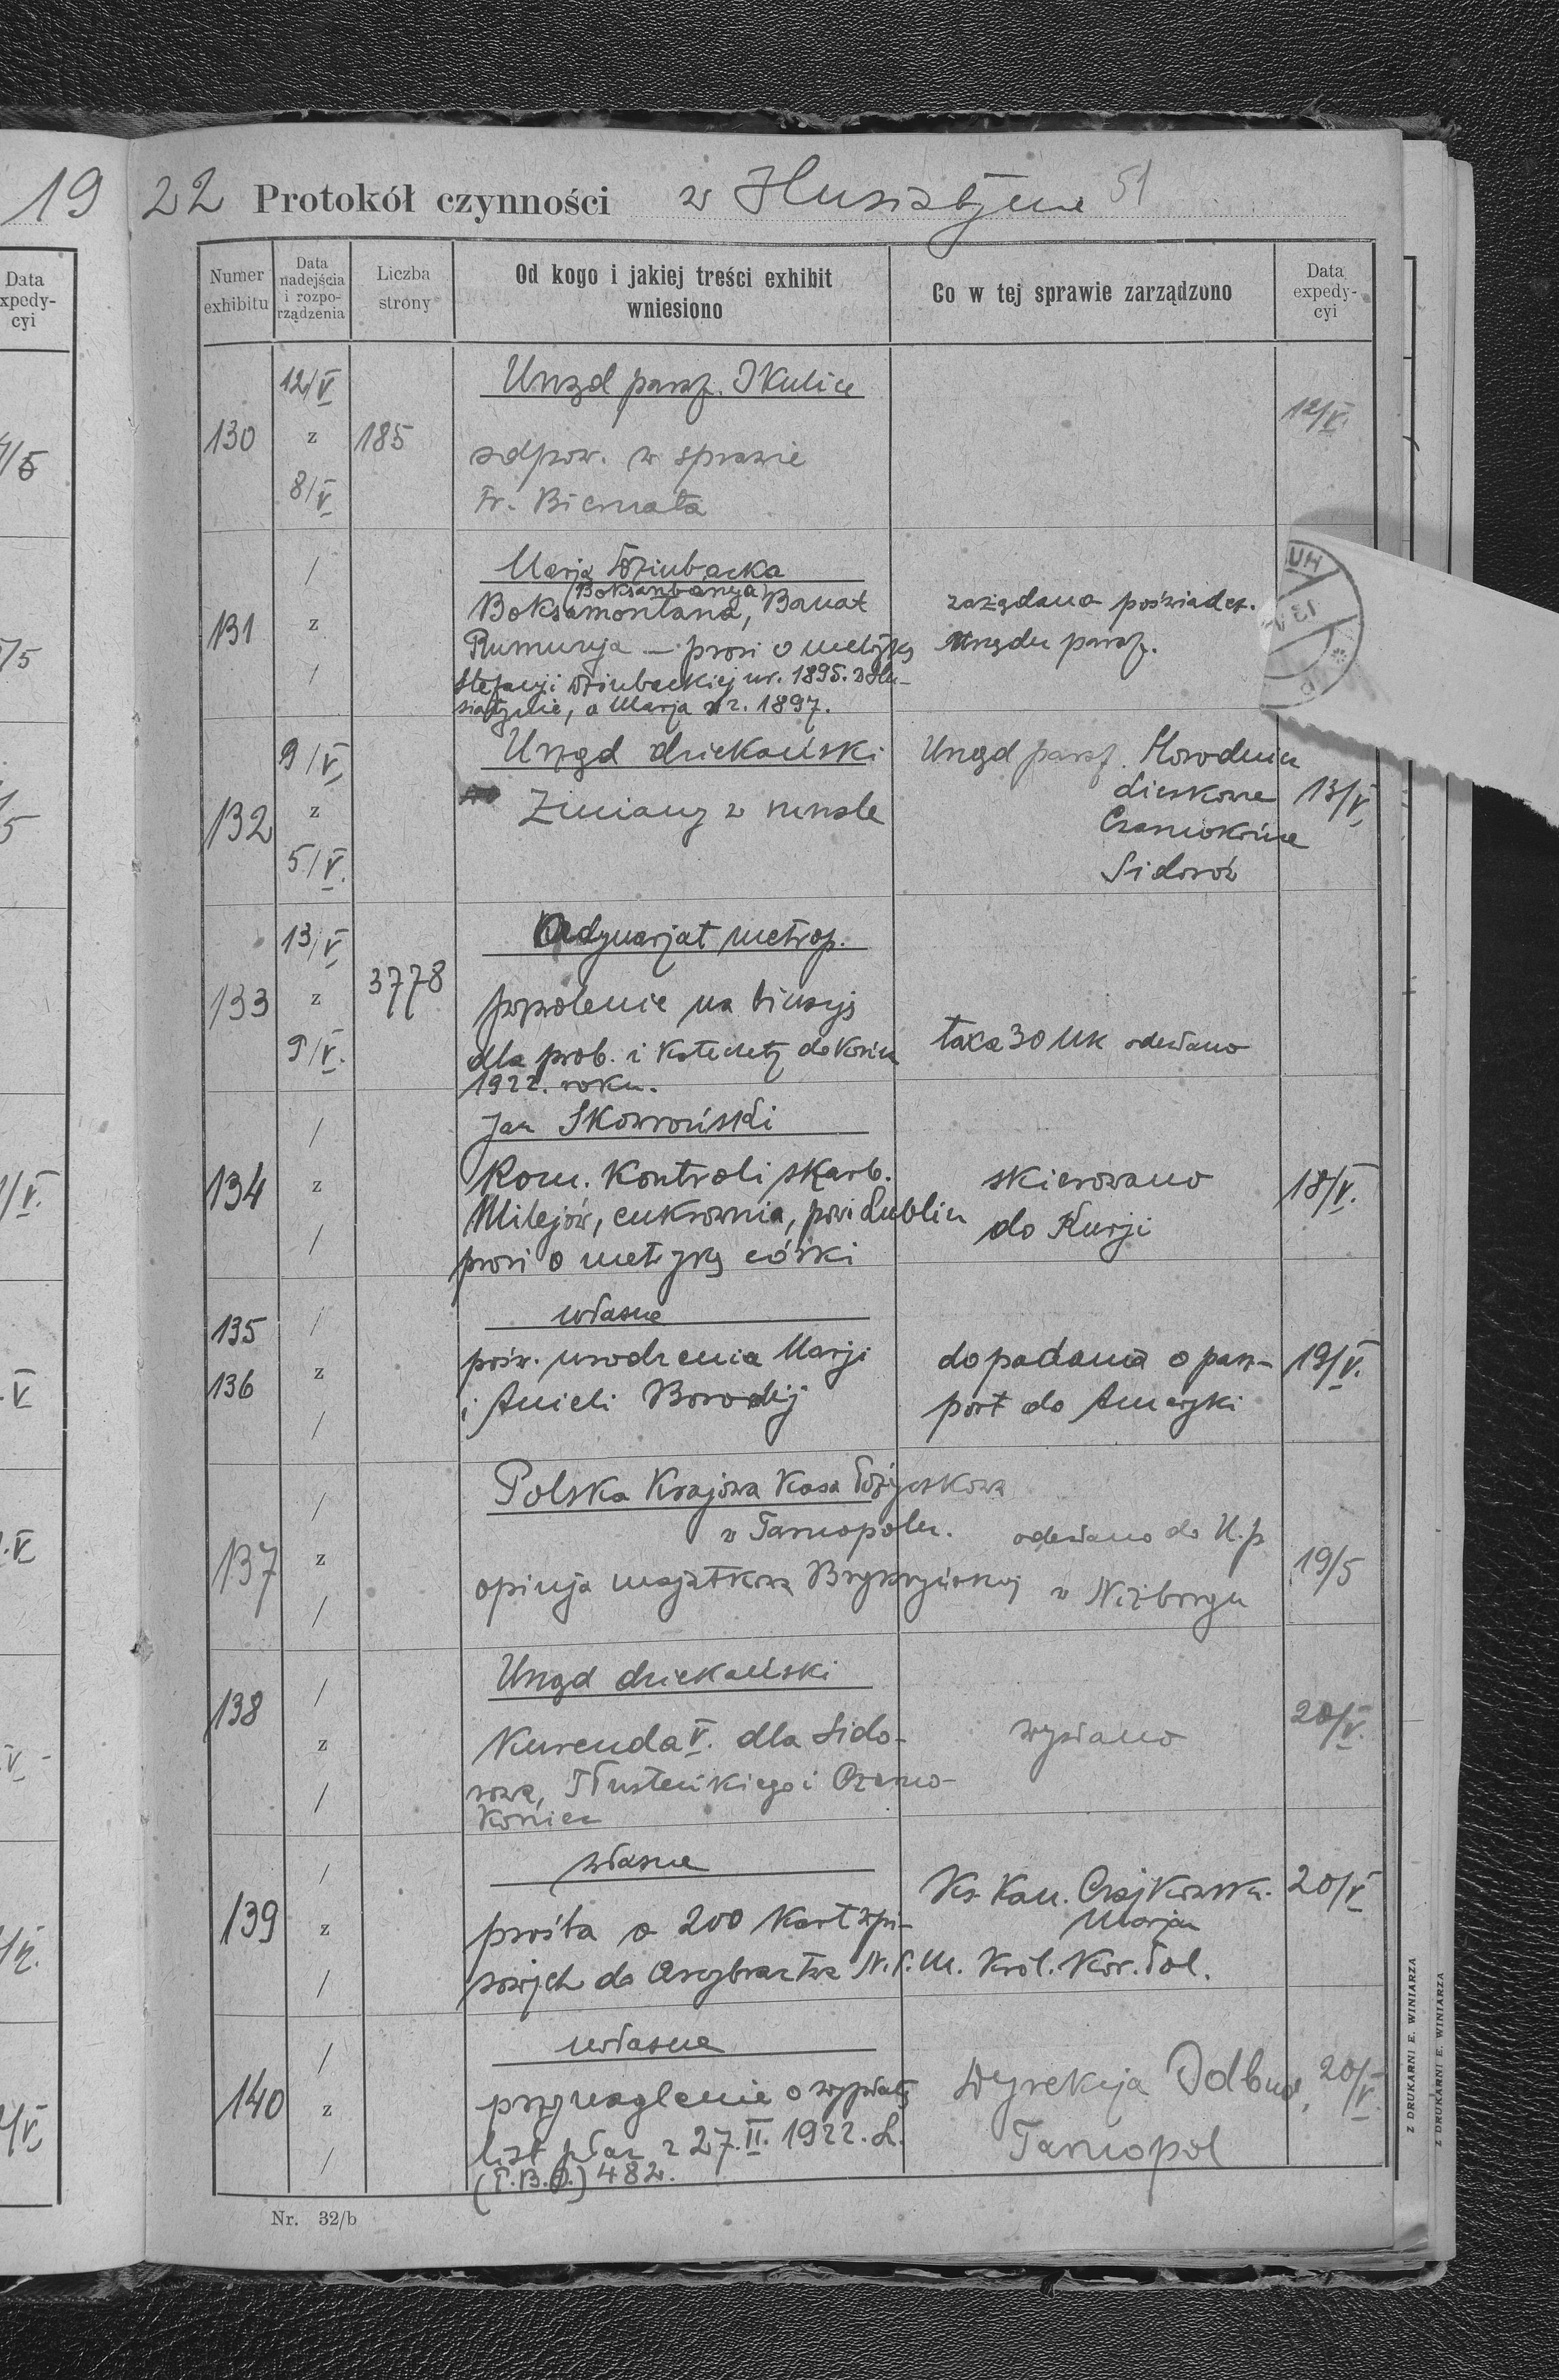 19
22 Protokół czynności w Husiatynie 51
Data
xpedy-
cyi
Numer
exhibitu
Data
nadejścia
i rozpo-
rządzenia
Liczba
strony
Od kogo i jakiej treści exhibit
wniesiono
Co w tej sprawie zarządzono
Data
expedy-
cyi
12/V
130 z 185
8/V
Urząd paraf.
odpow. w sprawie
Fr. Biernata
12/V.
131 z
Marja Dziubacka
(Boksanbanya)
Boksamontana, Banat
Rumunja — prosi o metrykę
Stefanji Dziubackiej ur. 1895. w Hu-
siatynie, a Marja ur. 1897.
zażądano poświadcz.
Urzędu paraf.
HU
13
132
9/V,
z
5/V.
Urząd dziekański
Zmiany w
Urząd paraf. Horodnica
Liczkowce
Czarnokońce
Sidorów
13/V,
133
13/V
z
9/V.
3778
Ordynarjat metrop.
pozwolenie na binację
dla prob. i katechety do końca
1922. roku.
taxa 30 Mk odesłano
134 z
Jan Skowroński
Kom. Kontroli skarb.
Milejów, cukrownia, pow. Lublin
prosi o metrykę córki
skierowano
do Kurji
18/V.
135
136
z
własne
pośw. urodzenia Marji
i Anieli Borodij
do podania o pasz-
port do Ameryki
19/V.
137 z
Polska Krajowa Kasa Pożyczkowa
w Tarnopolu.
opinja majątkowa
odesłano do U. p
w Niżborgu
19/5
138 z
Urząd dziekański
Kurenda V. dla Sido-
rowa, Tłusteńkiego i Czarno-
koniec
wysłano
20/V.
139 z
własne
prośba o 200 kart wpi-
sowych do Arcybractwa N.P.M. Król. Kor. Pol.
Ks. Kan. Czajkowsk.
Marjan
20/V
140 z
własne
przynaglenie o wypłatę
list płac z 27.II.1922. L.
(T.B.O.) 482.
Dyrekcja Odbud,
Tarnopol
20/V.
Nr. 32/b
Z DRUKARNI E. WINIARZA
Z DRUKARNI E. WINIARZA